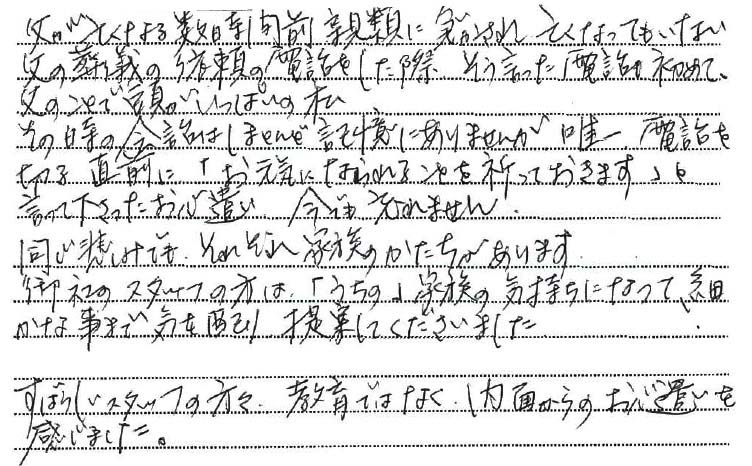 父が亡くなる数時間前 親類に急かされ 亡くなってもいない
父の葬儀の依頼の電話をした際、そう言った電話も初めて、
父のことで頭がいっぱいの私
その時の会話はしませんど記憶にありませんが 唯一、電話を
切る直前に「お元気になられることを祈っております」と
言って下さったお心遣い、今でも忘れません.
同じ悲しみでも、それぞれ家族のかたちがあります.
御社のスタッフの方は、「うちの」家族の気持ちになって、細
かな事まで気を配り 提案してくださいました
すばらしいスタッフの方々. 教育ではなく、内面からのお心遣いを
感じました。